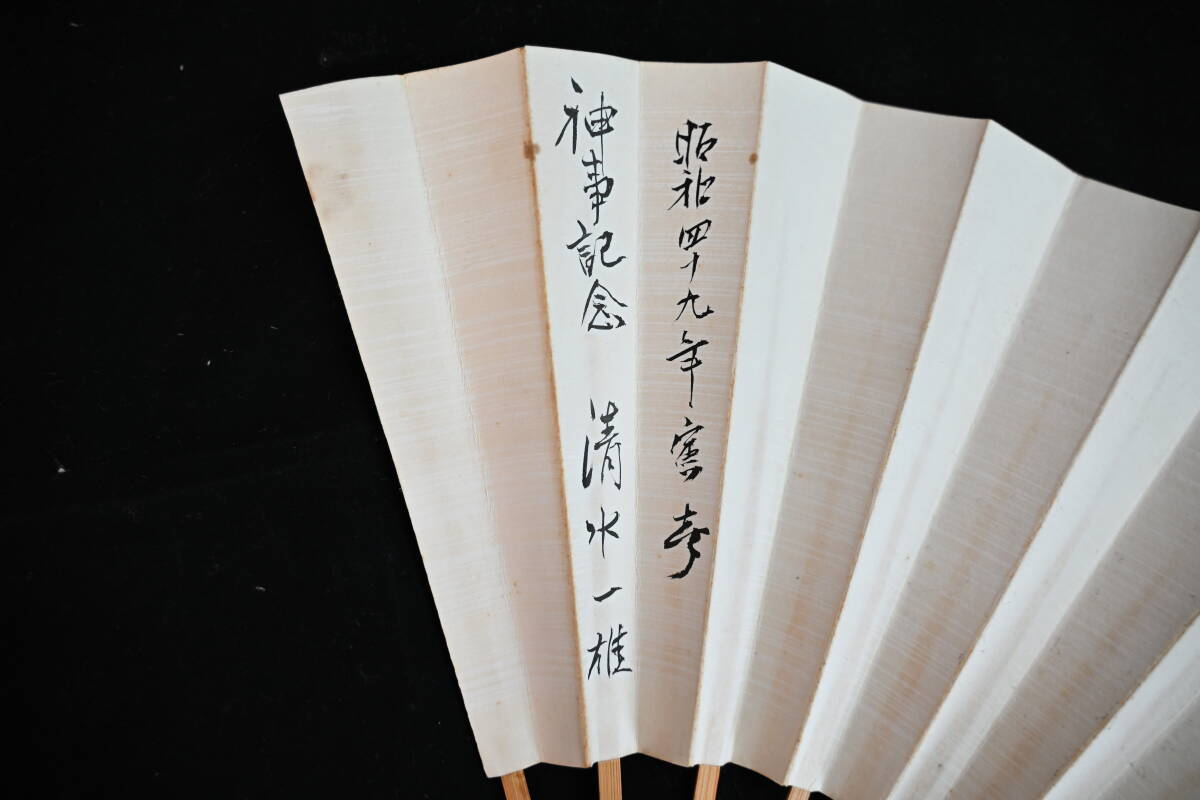 昭和四十九年窯寿
神事記念 清水一雄